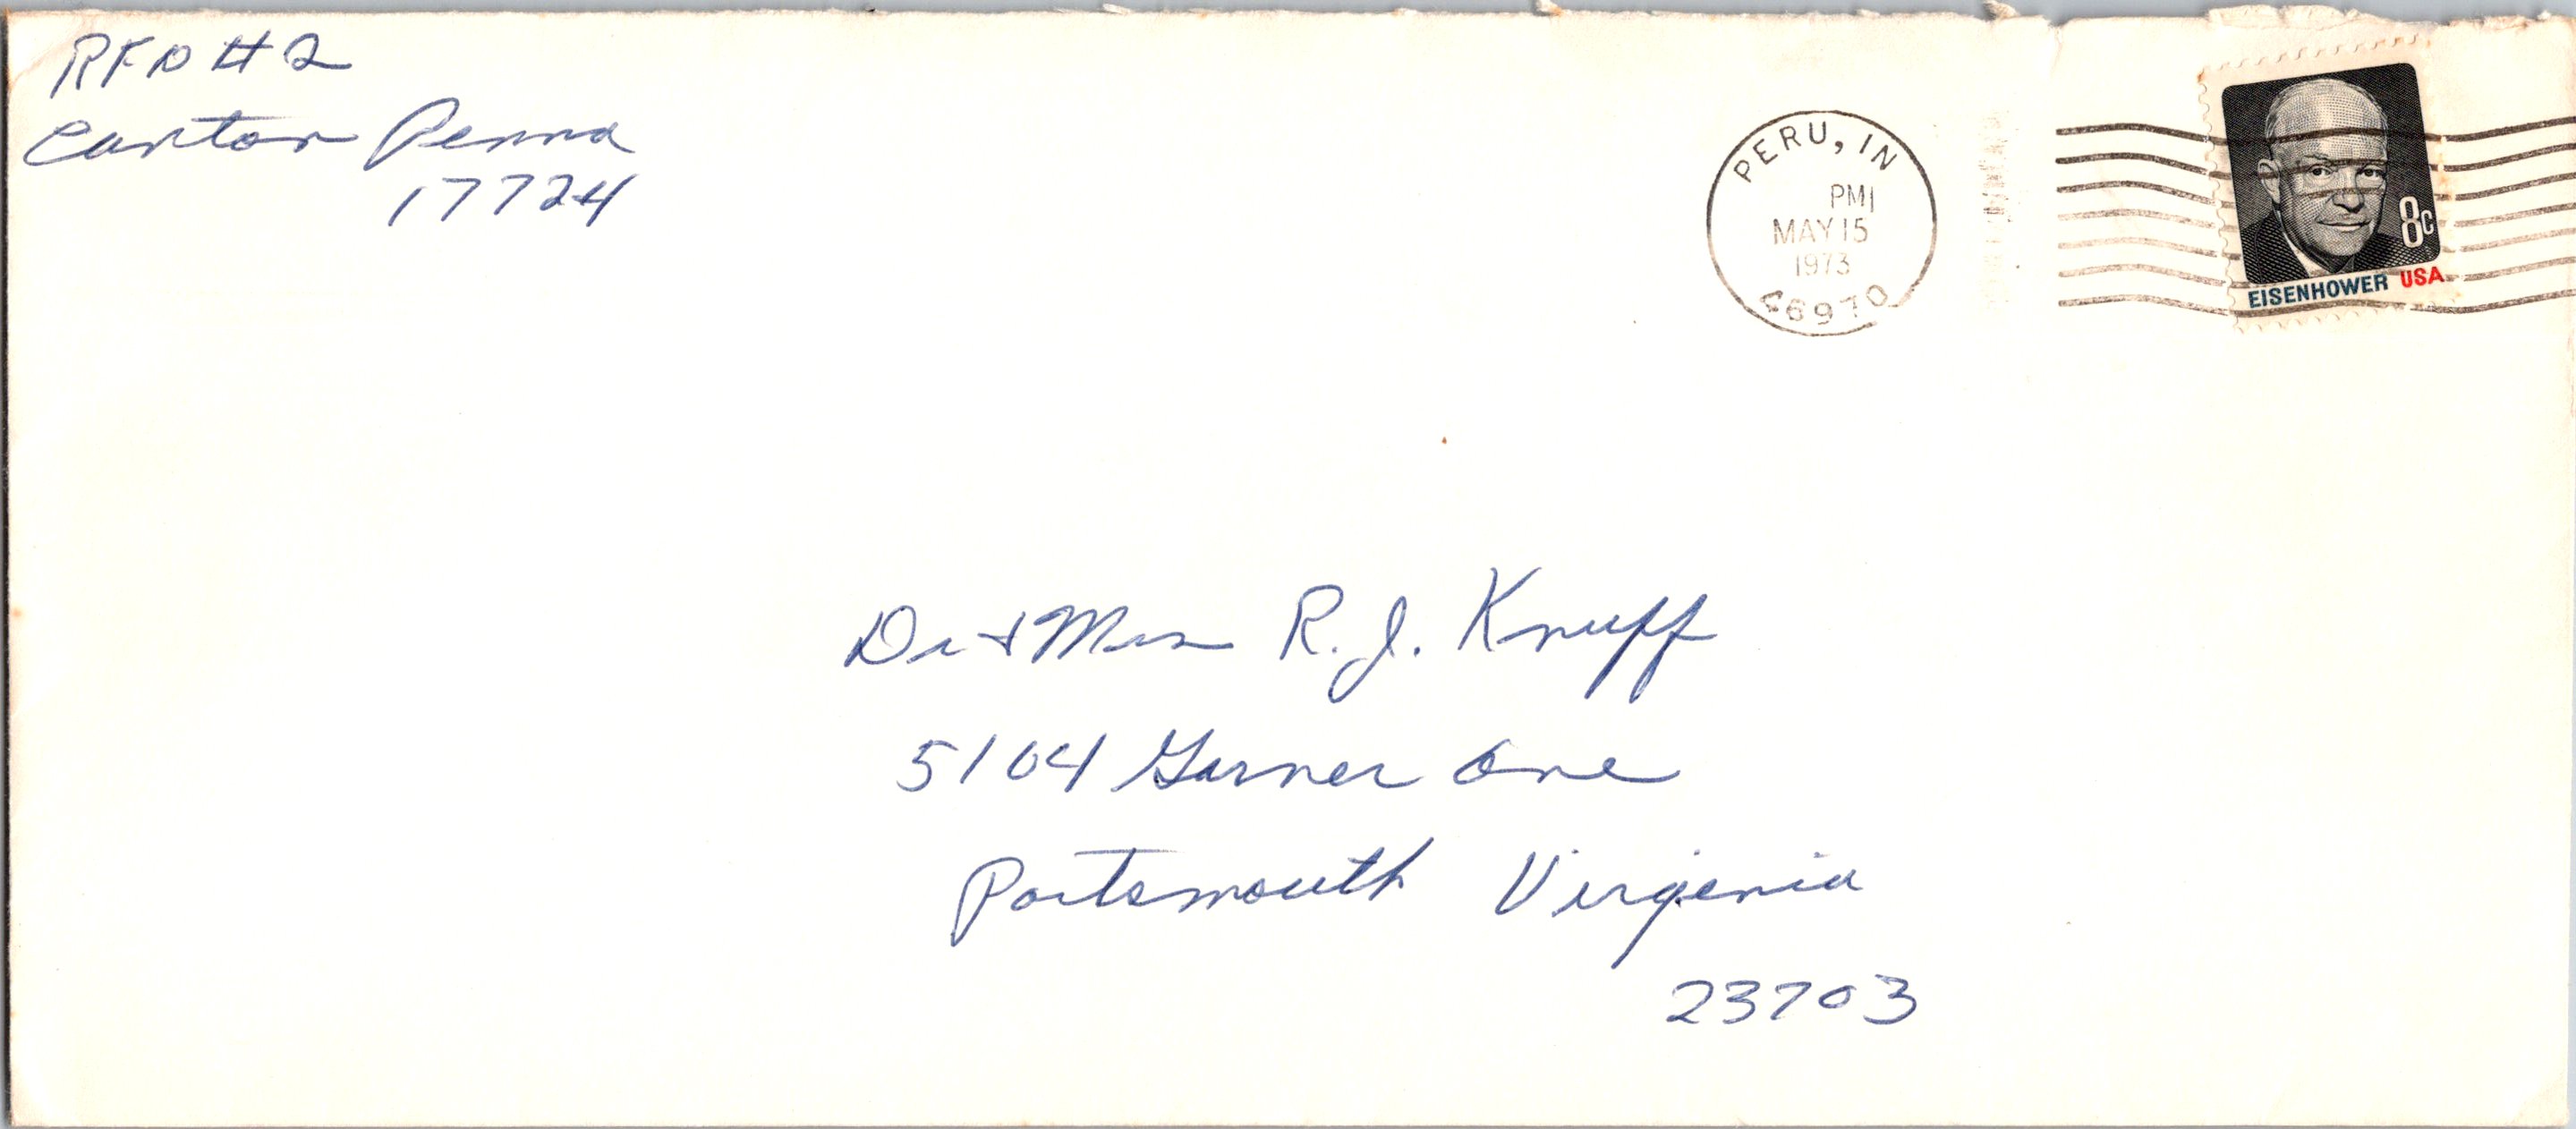 RFD #2
Canton Penna
17724
PERU, IN
PM
MAY 15
1973
46970
8c
EISENHOWER USA
Dr & Mrs R. J. Knuff
5104 Garner Ave
Portsmouth Virginia
23703